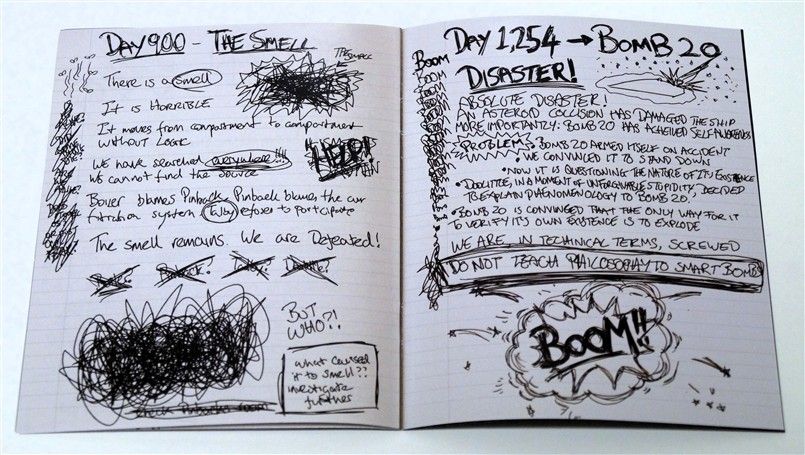 DAY 900 - THE SMELL
THE SMELL
There is a smell
It is HORRIBLE
It moves from compartment to compartment
without logic
We have searched everywhere!!!!
We cannot find the source
HELP!
Boiler blames Pinback. Pinback blames the air
filtration system. Talby refuses to participate
The smell remains. We are Defeated!
BUT
WHO?!
what caused
it to smell??
investigate
further
check Pinbacks room
DAY 1,254 → BOMB 20
DISASTER!
BOOM
BOOM
BOOM
BOOM
BOOM
BOOM
BOOM
BOOM
ABSOLUTE DISASTER!
AN ASTEROID COLLISION HAS DAMAGED THE SHIP
MORE IMPORTANTLY: BOMB 20 HAS ACHEIVED SELF AWARENESS
PROBLEM
• BOMB 20 ARMED ITSELF ON ACCIDENT
• WE CONVINCED IT TO STAND DOWN
• NOW IT IS QUESTIONING THE NATURE OF ITS EXISTENCE
• DOOLITTLE, IN A MOMENT OF UNFORGIVABLE STUPIDITY, DECIDED
TO EXPLAIN PHENOMENOLOGY TO BOMB 20.
• BOMB 20 IS CONVINCED THAT THE ONLY WAY FOR IT
TO VERIFY IT'S OWN EXISTENCE IS TO EXPLODE
WE ARE, IN TECHNICAL TERMS, SCREWED
DO NOT TEACH PHILOSOPHY TO SMART BOMBS
BOOM!!